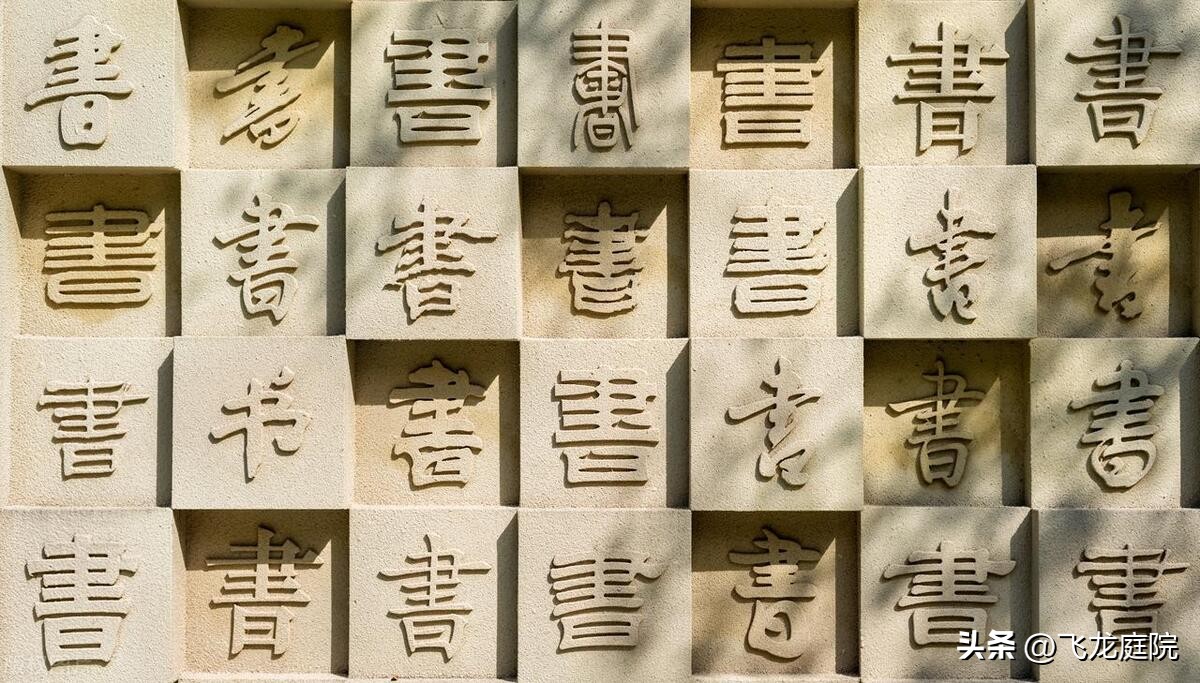 書書書書書書書
書書書書書書書
書书書書書書書
書書書書書書書
头条 @飞龙庭院